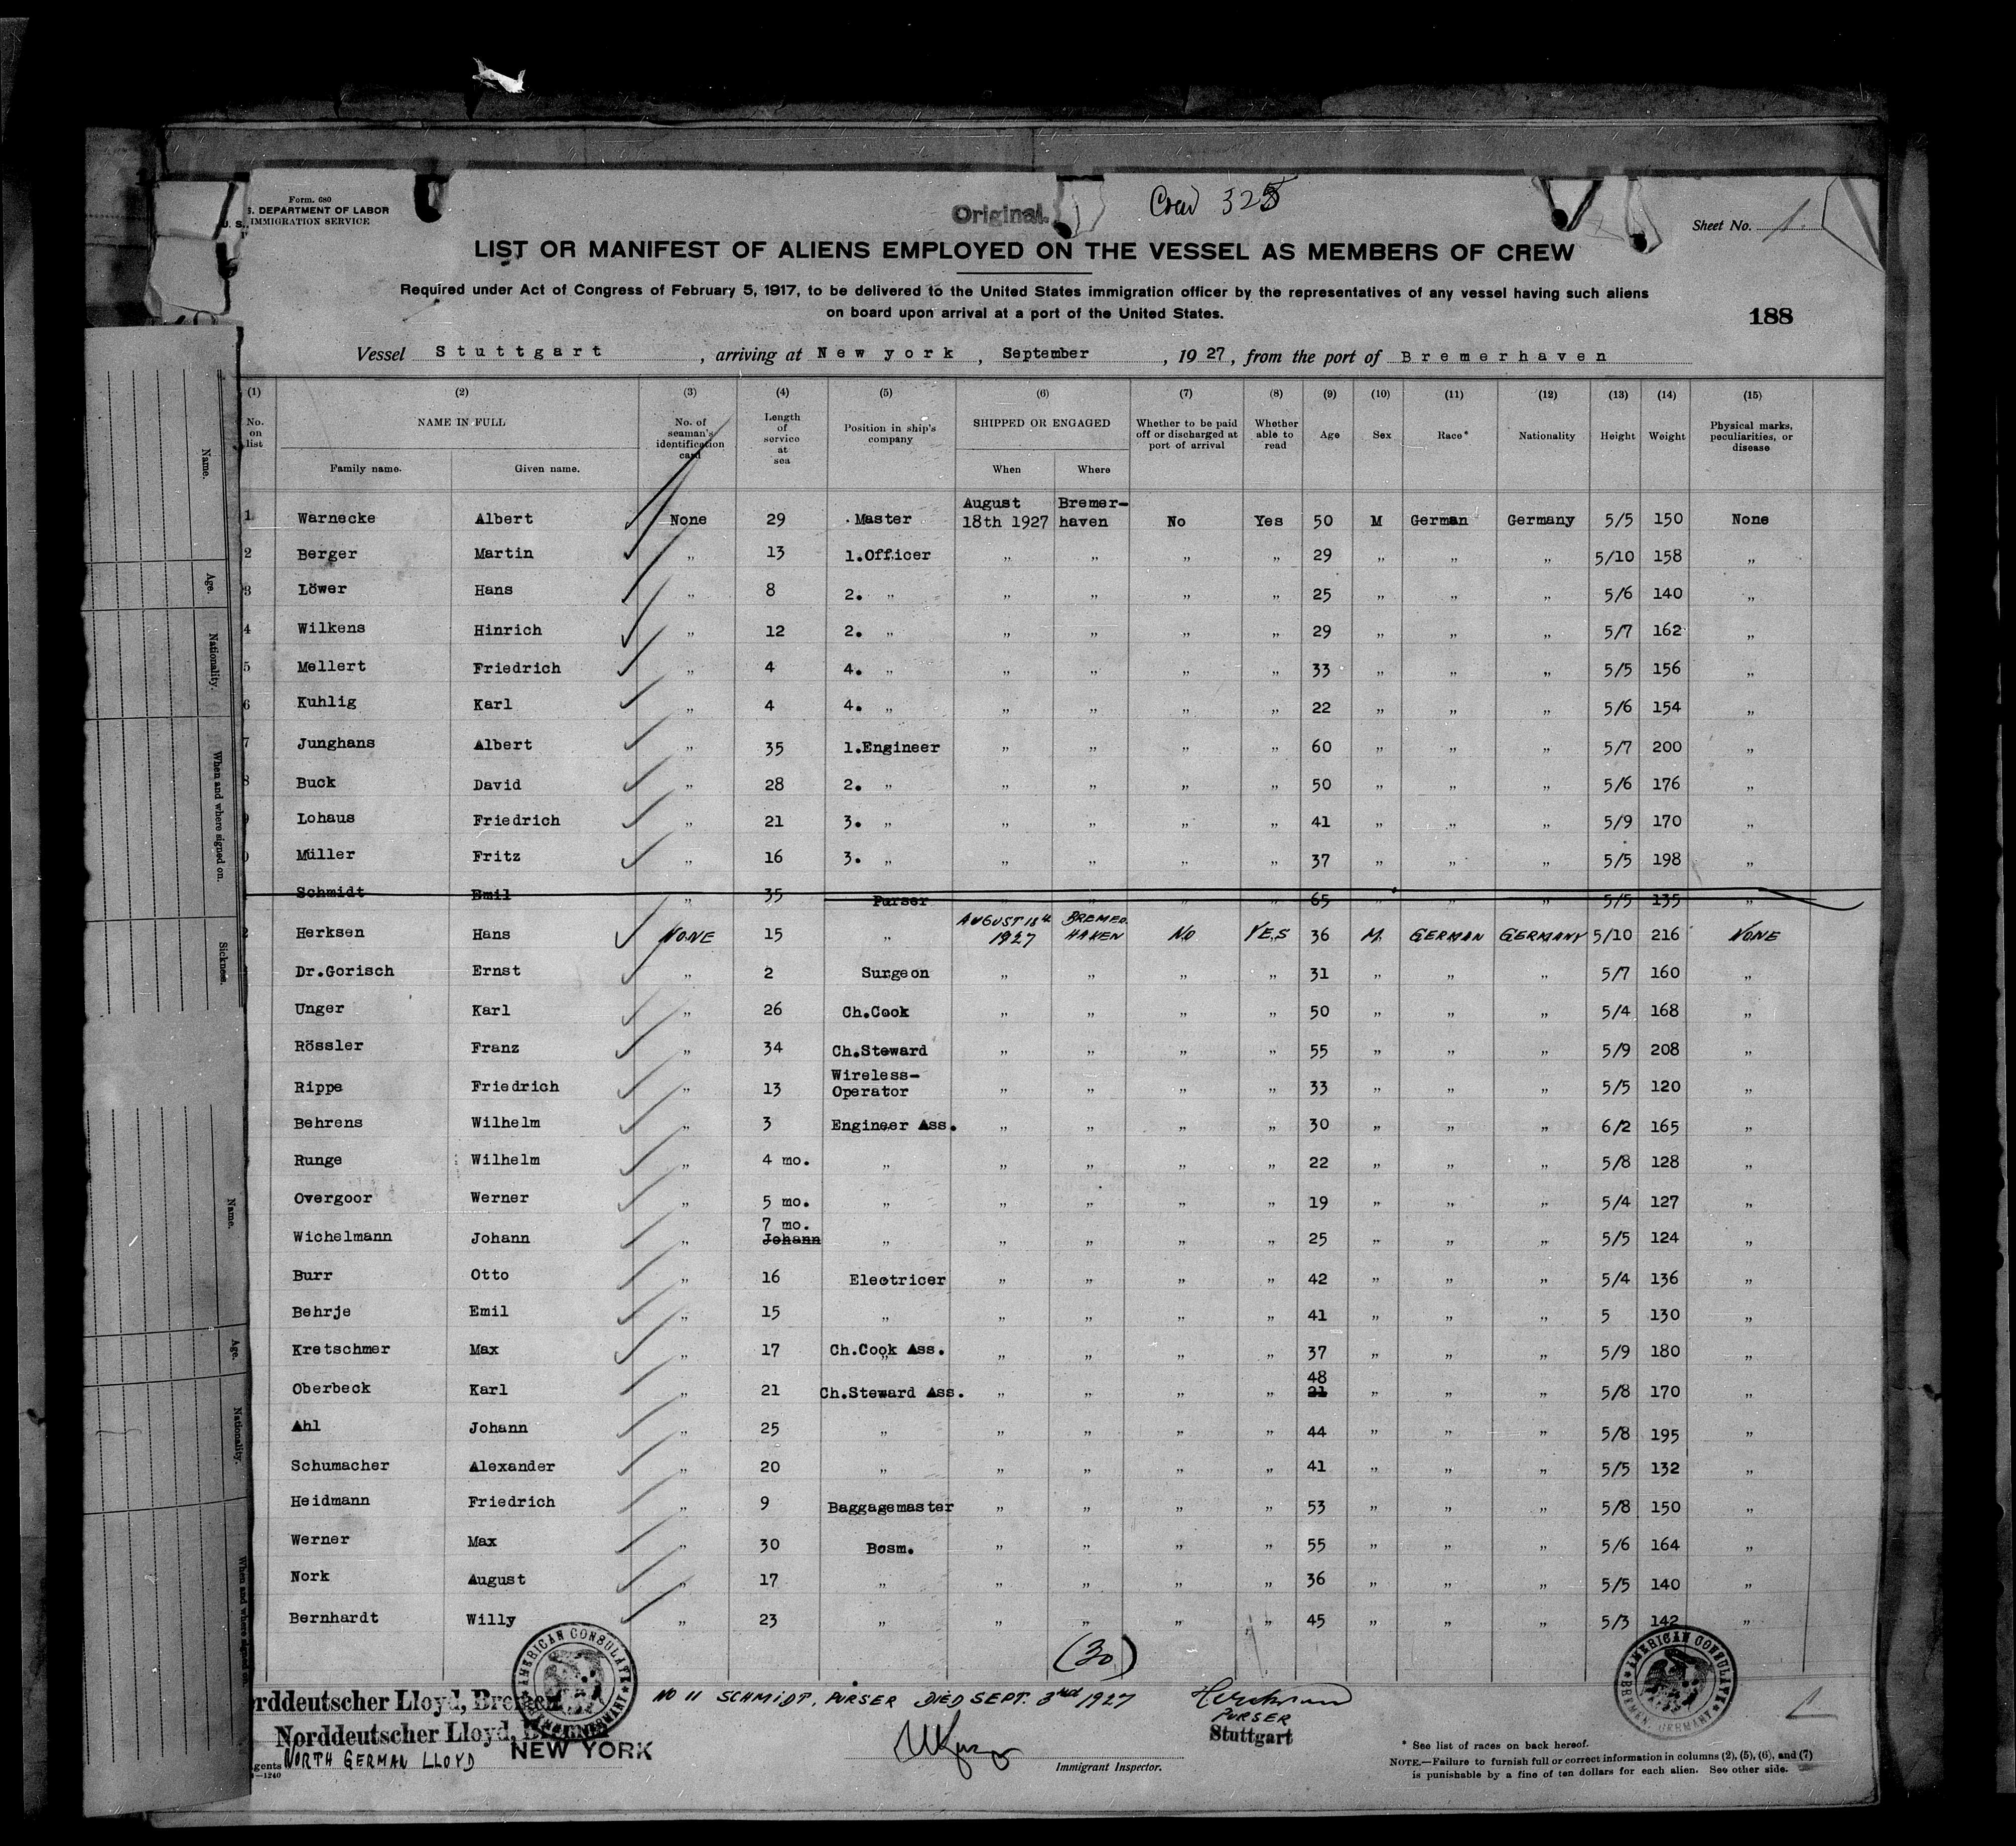 Form. 680
S. DEPARTMENT OF LABOR
U. S. IMMIGRATION SERVICE
Original.
Crew 325
Sheet No. 1.
LIST OR MANIFEST OF ALIENS EMPLOYED ON THE VESSEL AS MEMBERS OF CREW
Required under Act of Congress of February 5, 1917, to be delivered to the United States immigration officer by the representatives of any vessel having such aliens
on board upon arrival at a port of the United States.
188
Vessel Stuttgart, arriving at New york, September, 1927, from the port of Bremerhaven
(1) (2) (3) (4) (5) (6) (7) (8) (9) (10) (11) (12) (13) (14) (15)
No. on list NAME IN FULL No. of seaman's identification card Length of service at sea Position in ship's company SHIPPED OR ENGAGED Whether to be paid off or discharged at port of arrival Whether able to read Age Sex Race* Nationality Height Weight Physical marks, peculiarities, or disease
Family name. Given name. When Where
1 Warnecke Albert None 29 Master August 18th 1927 Bremer-haven No Yes 50 M German Germany 5/5 150 None
2 Berger Martin „ 13 1.Officer „ „ „ „ 29 „ „ „ 5/10 158 „
3 Löwer Hans „ 8 2. „ „ „ „ „ 25 „ „ „ 5/6 140 „
4 Wilkens Hinrich „ 12 2. „ „ „ „ „ 29 „ „ „ 5/7 162 „
5 Mellert Friedrich „ 4 4. „ „ „ „ „ 33 „ „ „ 5/5 156 „
6 Kuhlig Karl „ 4 4. „ „ „ „ „ 22 „ „ „ 5/6 154 „
7 Junghans Albert „ 35 1.Engineer „ „ „ „ 60 „ „ „ 5/7 200 „
8 Buck David „ 28 2. „ „ „ „ „ 50 „ „ „ 5/6 176 „
9 Lohaus Friedrich „ 21 3. „ „ „ „ „ 41 „ „ „ 5/9 170 „
0 Müller Fritz „ 16 3. „ „ „ „ „ 37 „ „ „ 5/5 198 „
Schmidt Emil 35 Purser „ „ „ „ 65 „ „ „ 5/5 135 „
2 Herksen Hans NONE 15 „ AUGUST 18th 1927 BREMER HAVEN NO YES 36 M. GERMAN GERMANY 5/10 216 NONE
Dr.Gorisch Ernst „ 2 Surgeon „ „ „ „ 31 „ „ „ 5/7 160 „
Unger Karl „ 26 Ch.Cook „ „ „ „ 50 „ „ „ 5/4 168 „
Rössler Franz „ 34 Ch.Steward „ „ „ „ 55 „ „ „ 5/9 208 „
Rippe Friedrich „ 13 Wireless-Operator „ „ „ „ 33 „ „ „ 5/5 120 „
Behrens Wilhelm „ 3 Engineer Ass. „ „ „ „ 30 „ „ „ 6/2 165 „
Runge Wilhelm „ 4 mo. „ „ „ „ „ 22 „ „ „ 5/8 128 „
Overgoor Werner „ 5 mo. „ „ „ „ „ 19 „ „ „ 5/4 127 „
Wichelmann Johann „ 7 mo. Johann „ „ „ „ „ 25 „ „ „ 5/5 124 „
Burr Otto „ 16 Electricer „ „ „ „ 42 „ „ „ 5/4 136 „
Behrje Emil „ 15 „ „ „ „ „ 41 „ „ „ 5 130 „
Kretschmer Max „ 17 Ch.Cook Ass. „ „ „ „ 37 „ „ „ 5/9 180 „
Oberbeck Karl „ 21 Ch.Steward Ass. „ „ „ „ 48 21 „ „ „ 5/8 170 „
Ahl Johann „ 25 „ „ „ „ „ 44 „ „ „ 5/8 195 „
Schumacher Alexander „ 20 „ „ „ „ „ 41 „ „ „ 5/5 132 „
Heidmann Friedrich „ 9 Baggagemaster „ „ „ „ 53 „ „ „ 5/8 150 „
Werner Max „ 30 Bosm. „ „ „ „ 55 „ „ „ 5/6 164 „
Nork August „ 17 „ „ „ „ „ 36 „ „ „ 5/5 140 „
Bernhardt Willy „ 23 „ „ „ „ „ 45 „ „ „ 5/3 142 „
(30)
AMERICAN CONSULATE BREMEN, GERMANY
AMERICAN CONSULATE BREMEN, GERMANY
orddeutscher Lloyd, Bremen
NO 11 SCHMIDT, PURSER DIED SEPT. 3RD 1927
PURSER
Stuttgart
Norddeutscher Lloyd, Bremen
NEW YORK
gents NORTH GERMAN LLOYD
—1240
Immigrant Inspector.
* See list of races on back hereof.
NOTE.—Failure to furnish full or correct information in columns (2), (5), (6), and (7)
is punishable by a fine of ten dollars for each alien. See other side.
Name.
Age.
Nationality.
When and where signed on.
Sickness.
Name.
Age.
Nationality.
When and where signed on.